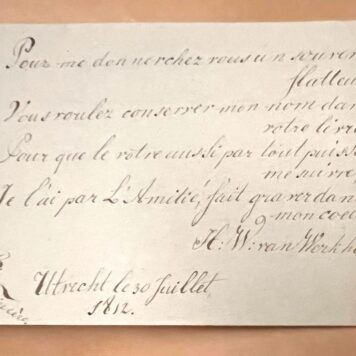 Pour me donner chez vous un souven
flatteu
Vous voulez conserver mon nom dan
votre livre
Pour que le votre aussi par tout puiss
me suivre,
Je l'ai par L'Amitié, fait graver dan
mon coeu
H: W: van Werkh
Utrecht le 30 Juillet,
1812.